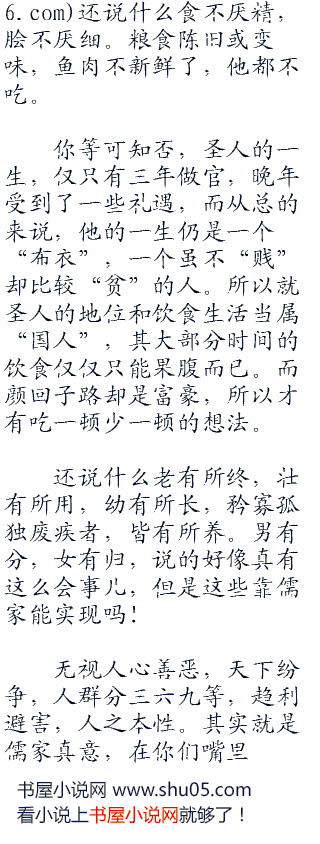 6.com)还说什么食不厌精，
脍不厌细。粮食陈旧或变
味，鱼肉不新鲜了，他都不
吃。
你等可知否，圣人的一
生，仅只有三年做官，晚年
受到了一些礼遇，而从总的
来说，他的一生仍是一个
“布衣”，一个虽不“贱”
却比较“贫”的人。所以就
圣人的地位和饮食生活当属
“国人”，其大部分时间的
饮食仅仅只能果腹而已。而
颜回子路却是富豪，所以才
有吃一顿少一顿的想法。
还说什么老有所终，壮
有所用，幼有所长，矜寡孤
独废疾者，皆有所养。男有
分，女有归，说的好像真有
这么会事儿，但是这些靠儒
家能实现吗！
无视人心善恶，天下纷
争，人群分三六九等，趋利
避害，人之本性。其实就是
儒家真意，在你们嘴里
书屋小说网 www.shu05.com
看小说上书屋小说网就够了！